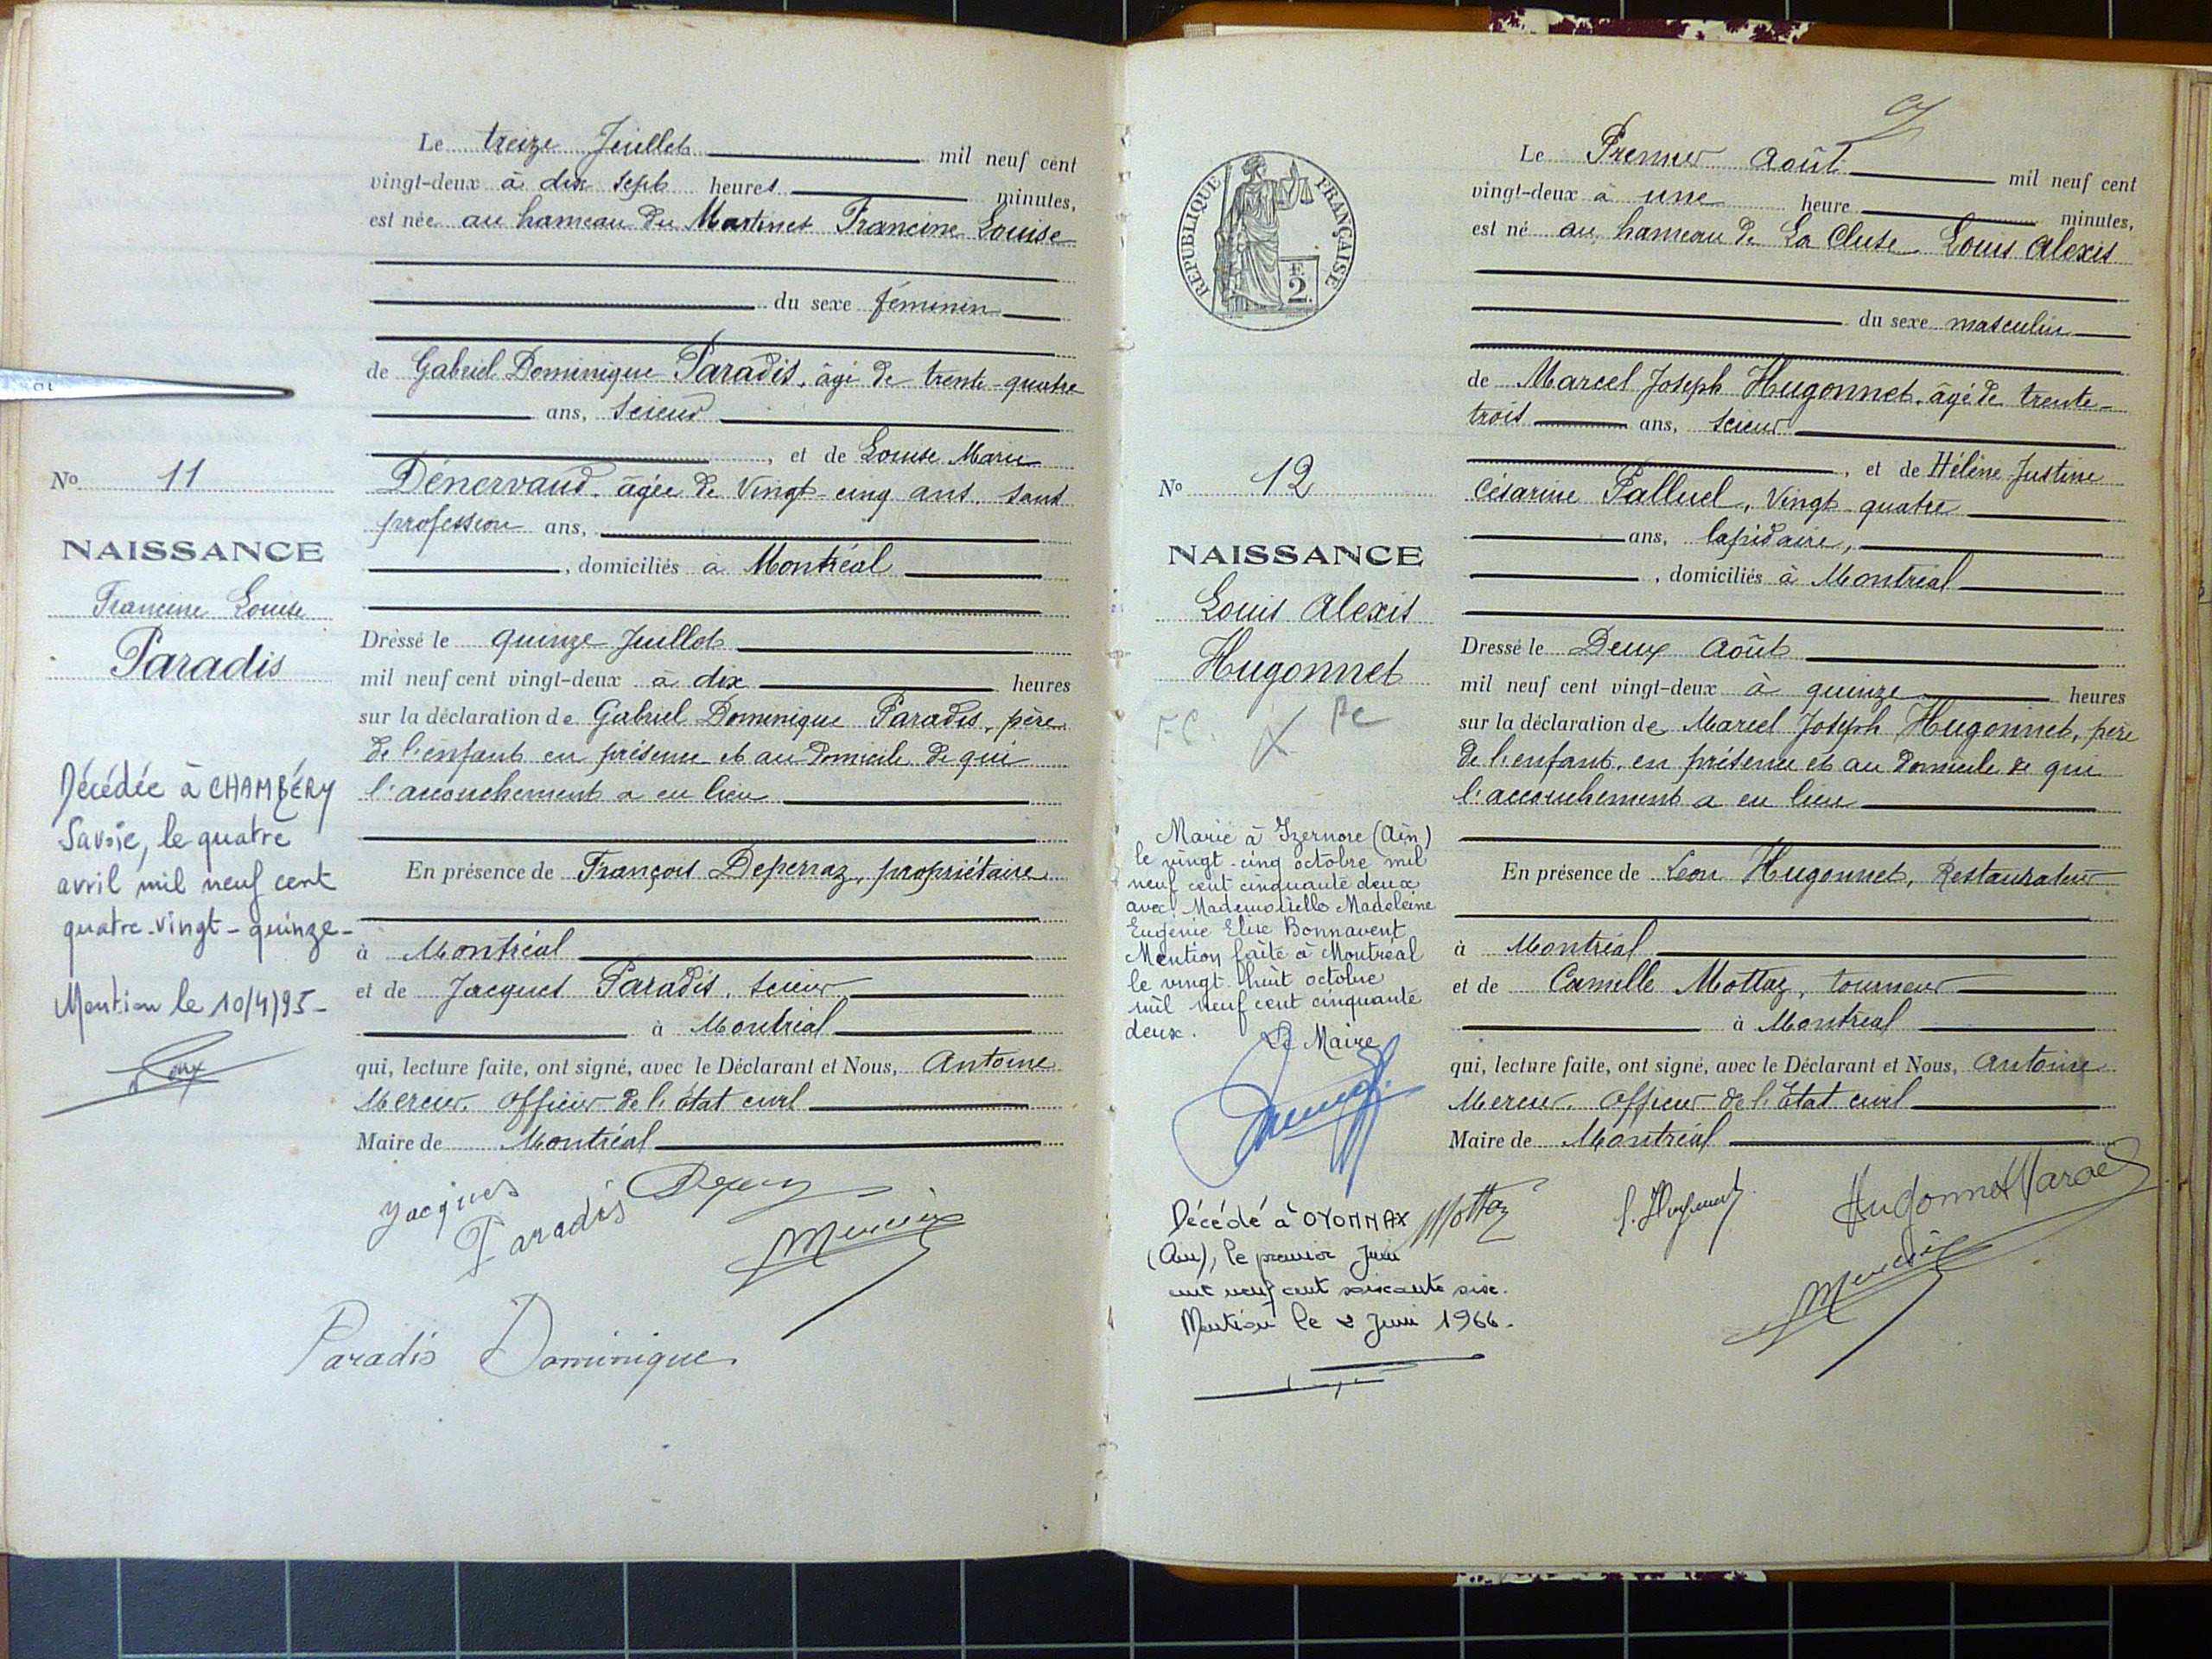 Le treize Juillet mil neuf cent
vingt-deux à dix sept heures minutes,
est née au hameau du Martinet Francine Louise
du sexe féminin
de Gabriel Dominique Paradis, âgé de trente-quatre
ans, scieur
, et de Louise Marie
Dénervaud, âgée de Vingt-cinq ans, sans
profession ans,
, domiciliés à Montréal
Dressé le quinze Juillet
mil neuf cent vingt-deux à dix heures
sur la déclaration de Gabriel Dominique Paradis, père
de l'enfant en présence et au domicile de qui
l'accouchement a eu lieu
En présence de François Deperraz, propriétaire
à Montréal
et de Jacques Paradis, scieur
à Montréal
qui, lecture faite, ont signé, avec le Déclarant et Nous, Antoine
Mercier, Officier de l'État civil
Maire de Montréal
Jacques
Paradis
Mercier
Paradis Dominique
No 11
NAISSANCE
Francine Louise
Paradis
Décédée à CHAMBÉRY
Savoie, le quatre
avril mil neuf cent
quatre-vingt-quinze-
Mention le 10/4/95-
REPUBLIQUE FRANÇAISE
F.
2.
Le Premier Août mil neuf cent
vingt-deux à une heure minutes,
est né au hameau de La Cluse Louis Alexis
du sexe masculin
de Marcel Joseph Hugonnet, âgé de trente-
trois ans, scieur
, et de Hélène Justine
Césarine Palluel, Vingt-quatre
ans, lapidaire,
, domiciliés à Montréal
Dressé le Deux Août
mil neuf cent vingt-deux à quinze heures
sur la déclaration de Marcel Joseph Hugonnet, père
de l'enfant, en présence et au domicile de qui
l'accouchement a eu lieu
En présence de Léon Hugonnet, Restaurateur
à Montréal
et de Camille Mottaz, tourneur
à Montréal
qui, lecture faite, ont signé, avec le Déclarant et Nous, Antoine
Mercier, Officier de l'État civil
Maire de Montréal
Mottaz
Hugonnet Marcel
Mercier
No 12
NAISSANCE
Louis Alexis
Hugonnet
Marié à Izernore (Ain)
le vingt-cinq octobre mil
neuf cent cinquante deux
avec Mademoiselle Madeleine
Eugénie Elise Bonnavent
Mention faite à Montréal
le vingt-huit octobre
mil neuf cent cinquante
deux.
Le Maire
Décédé à OYONNAX
(Ain), le premier Juin
mil neuf cent soixante six.
Mention le 2 Juin 1966.